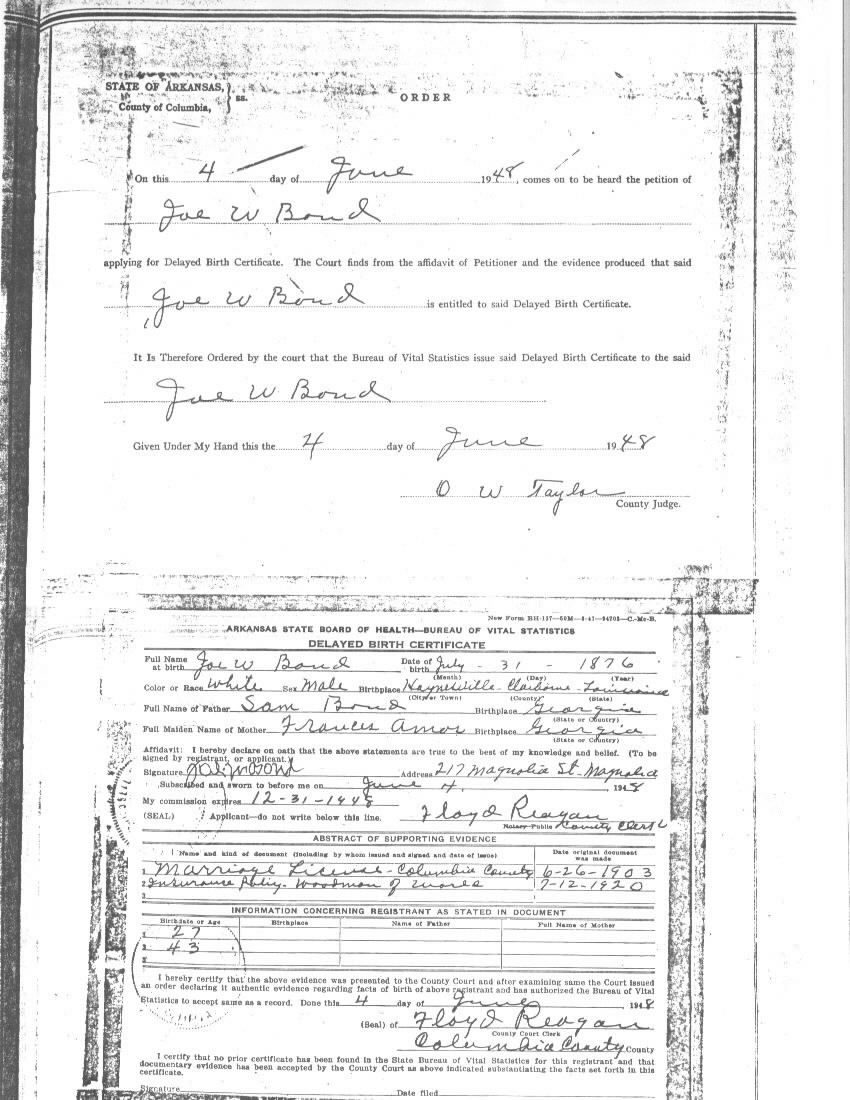 STATE OF ARKANSAS, } ss.
County of Columbia,
ORDER
On this 4 day of June 1948, comes on to be heard the petition of
Joe W Bond
applying for Delayed Birth Certificate. The Court finds from the affidavit of Petitioner and the evidence produced that said
Joe W Bond is entitled to said Delayed Birth Certificate.
It Is Therefore Ordered by the court that the Bureau of Vital Statistics issue said Delayed Birth Certificate to the said
Joe W Bond
Given Under My Hand this the 4 day of June 1948
O W Taylor
County Judge.
New Form BH-137—50M—
ARKANSAS STATE BOARD OF HEALTH—BUREAU OF VITAL STATISTICS
DELAYED BIRTH CERTIFICATE
Full Name at birth Joe W Bond Date of birth July - 31 - 1876
(Month) (Day) (Year)
Color or Race White Sex Male Birthplace Haynesville - Claiborne - Louisiana
(City or Town) (County) (State)
Full Name of Father Sam Bond Birthplace Georgia
(State or Country)
Full Maiden Name of Mother Frances Amos Birthplace Georgia
(State or Country)
Affidavit: I hereby declare on oath that the above statements are true to the best of my knowledge and belief. (To be
signed by registrant, or applicant.)
Signature Address 217 Magnolia St - Magnolia
Subscribed and sworn to before me on June 4, 1948
My commission expires 12-31-1948 Floyd Reagan
(SEAL) Applicant—do not write below this line. Notary Public County Clerk
ABSTRACT OF SUPPORTING EVIDENCE
Name and kind of document (including by whom issued and signed and date of issue) Date original document was made
1 Marriage License - Columbia County 6-26-1903
2 Insurance Policy - Woodman of World 7-12-1920
3
INFORMATION CONCERNING REGISTRANT AS STATED IN DOCUMENT
Birthdate or Age Birthplace Name of Father Full Name of Mother
27
43
I hereby certify that the above evidence was presented to the County Court and after examining same the Court issued
an order declaring it authentic evidence regarding facts of birth of above registrant and has authorized the Bureau of Vital
Statistics to accept same as a record. Done this 4 day of June, 1948
(Seal) of Floyd Reagan
County Court Clerk
Columbia County County
I certify that no prior certificate has been found in the State Bureau of Vital Statistics for this registrant and that
documentary evidence has been accepted by the County Court as above indicated substantiating the facts set forth in this
certificate.
Signature Date filed